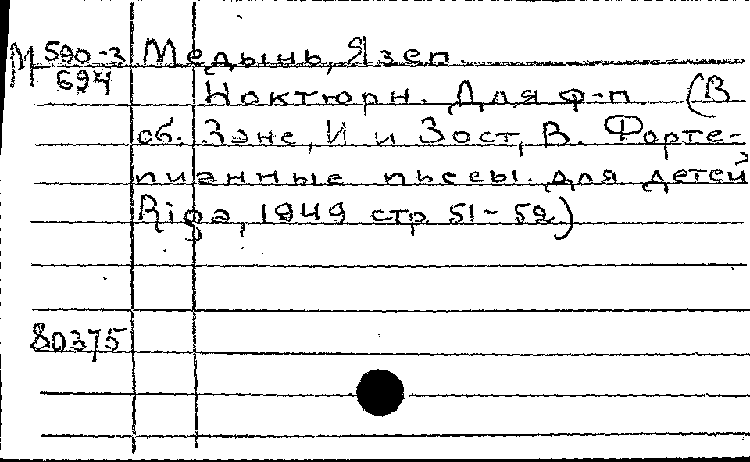 М 590-3 Медынь, Язеп
694 Ноктюрн. Для ф-п. (В
сб. Зане, И и Зост, В. Форте-
пианные пьесы для детей
Riga, 1949 стр. 51-52)
80375